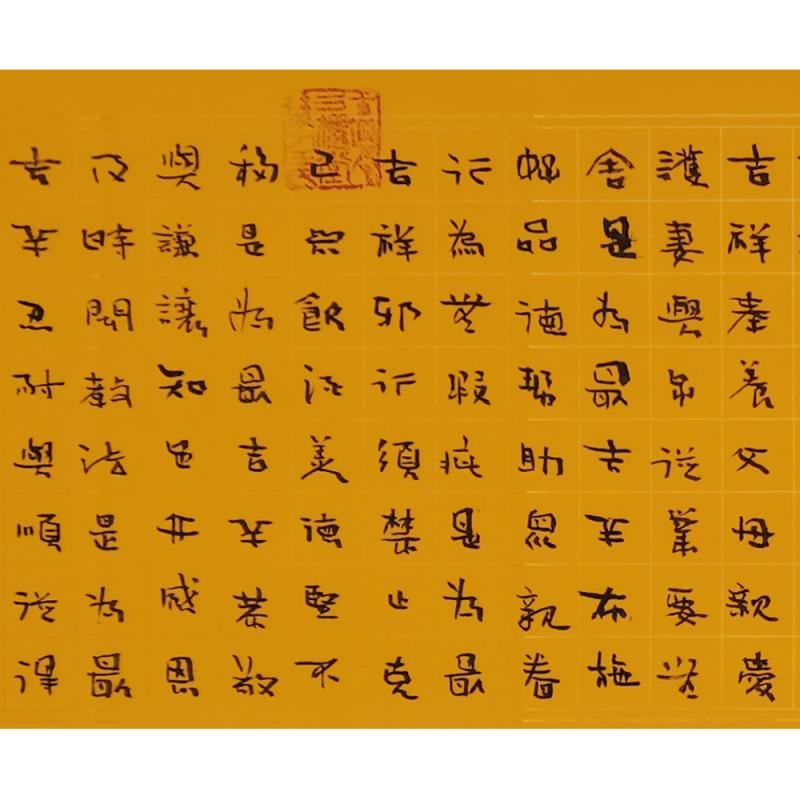 吉祥奉養父母親愛
護妻與子從業要無
害是為最吉羊布施
好品德幫助眾親眷
行為無瑕疵是為最
吉祥邪行須禁止克
己不飲酒美德堅不
移是為最吉羊恭敬
與謙讓知足並感恩
及時聞教法是為最
吉羊忍耐與順從得